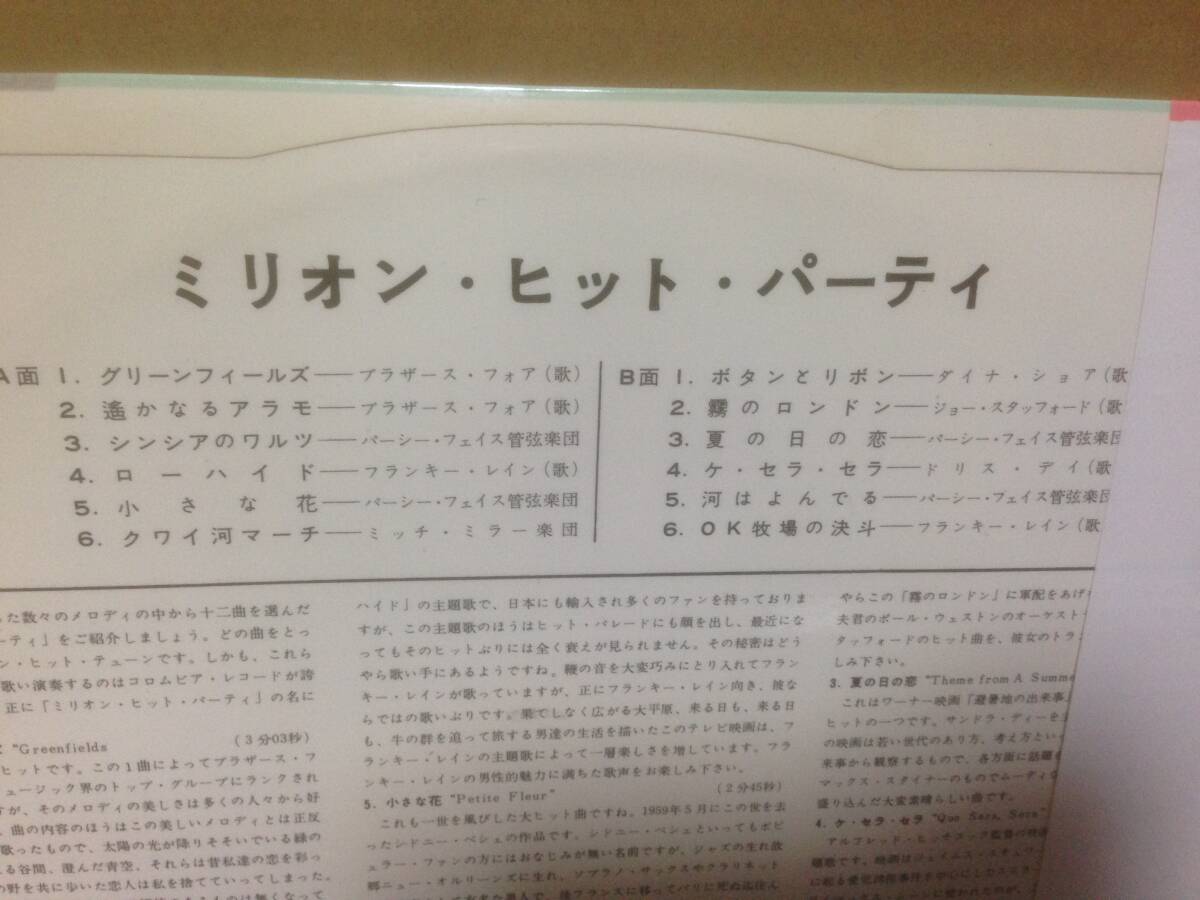 ミリオン・ヒット・パーティ
A面 1. グリーンフィールズ──ブラザース・フォア(歌)
2. 遙かなるアラモ──ブラザース・フォア(歌)
3. シンシアのワルツ──パーシー・フェイス管弦楽団
4. ローハイド──フランキー・レイン(歌)
5. 小さな花──パーシー・フェイス管弦楽団
6. クワイ河マーチ──ミッチ・ミラー楽団
B面 1. ボタンとリボン──ダイナ・ショア(歌
2. 霧のロンドン──ジョー・スタッフォード(歌
3. 夏の日の恋──パーシー・フェイス管弦楽団
4. ケ・セラ・セラ──ドリス・デイ(歌
5. 河はよんでる──パーシー・フェイス管弦楽団
6. OK牧場の決斗──フランキー・レイン(歌
た数々のメロディの中から十二曲を選んだ
ーティ」をご紹介しましょう。どの曲をとっ
ン・ヒット・テューンです。しかも、これら
歌い演奏するのはコロムビア・レコードが誇
正に「ミリオン・ヒット・パーティ」の名に
"Greenfields (3分03秒)
ヒットです。この1曲によってブラザース・フ
ュージック界のトップ・グループにランクされ
すが、そのメロディの美しさは多くの人々から好
曲の内容のほうはこの美しいメロディとは正反
歌ったもので、太陽の光が降りそそいでいる緑の
る谷間、澄んだ青空、それらは昔私達の恋を彩っ
の野を共に歩いた恋人は私を捨てていってしまった。
ハイド」の主題歌で、日本にも輸入され多くのファンを持っておりま
すが、この主題歌のほうはヒット・パレードにも顔を出し、最近にな
ってもそのヒットぶりには全く衰えが見られません。その秘密はどう
やら歌い手にあるようですね。鞭の音を大変巧みにとり入れてフラン
キー・レインが歌っていますが、正にフランキー・レイン向き、彼な
らではの歌いぶりです。果てしなく広がる大平原、来る日も、来る日
も、牛の群を追って旅する男達の生活を描いたこのテレビ映画は、フ
ランキー・レインの主題歌によって一層楽しさを増しています。フラ
ンキー・レインの男性的魅力に満ちた歌声をお楽しみ下さい。
5. 小さな花 "Petite Fleur" (2分45秒)
これも一世を風びした大ヒット曲ですね。1959年5月にこの世を去
ったシドニー・ベシェの作品です。シドニー・ベシェといってもポピ
ュラー・ファンの方にはおなじみが無い名前ですが、ジャズの生れ故
郷ニュー・オルリーンズに生れ、ソプラノ・サックスやクラリネット
やらこの「霧のロンドン」に軍配をあげ
夫君のポール・ウェストンのオーケスト
タッフォードのヒット曲を、彼女のトラ
しみ下さい。
3. 夏の日の恋 "Theme from A Summe
これはワーナー映画「避暑地の出来事
ヒットの一つです。サンドラ・ディーを
の映画は若い世代のあり方、考え方とい
来事から観察するもので、各方面に話題
マックス・スタイナーのものでムーディ
盛り込んだ大変素晴らしい曲です。
4. ケ・セラ・セラ "Que Sera, Sera"
アルフレッド・ヒッチコック監督の映画